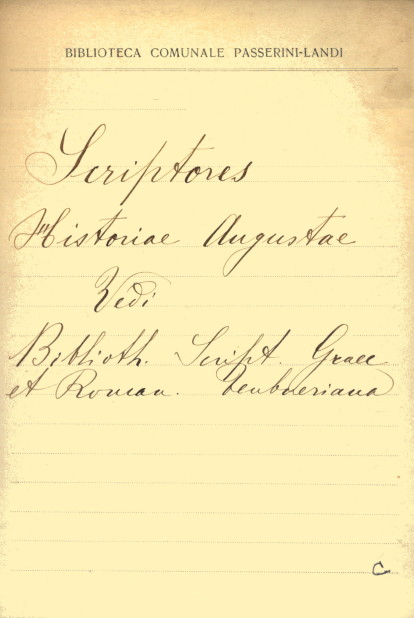 BIBLIOTECA COMUNALE PASSERINI-LANDI
Scriptores
Historiae Augustae
Vedi
Biblioth. Script. Graec
et Roman. Teubneriana
C